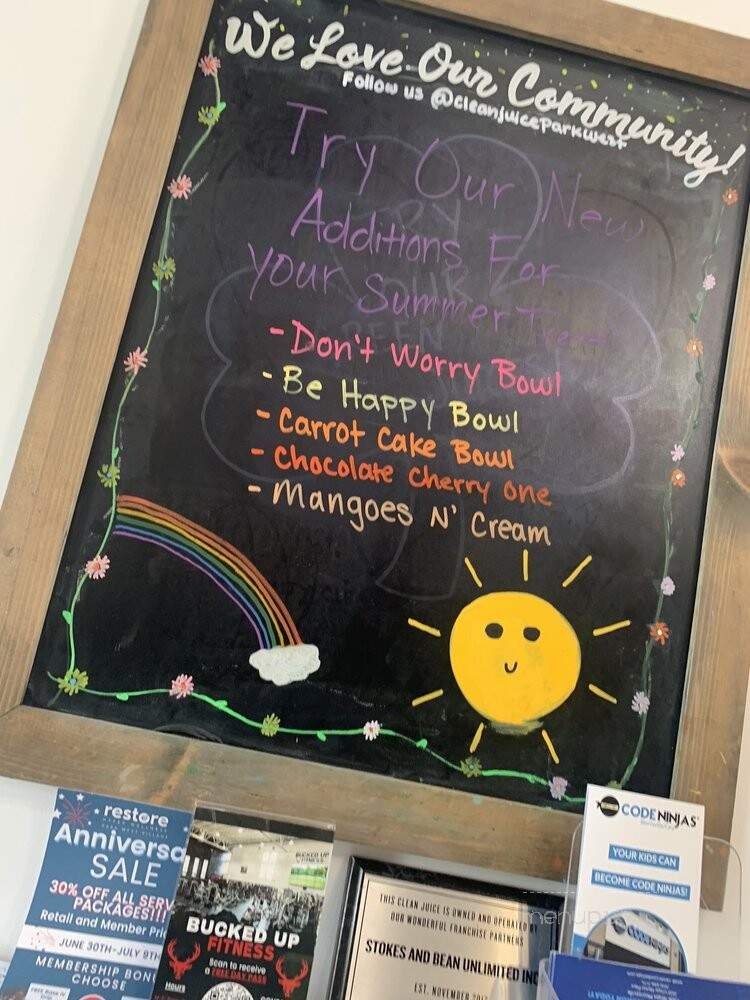 We Love Our Community!
Follow us @cleanjuiceparkwest
Try Our New
Additions For
your Summer Treat
- Don't Worry Bowl
- Be Happy Bowl
- Carrot Cake Bowl
- Chocolate Cherry One
- Mangoes N' Cream
restore
Anniversa
SALE
30% OFF ALL SERV
PACKAGES!!!
Retail and Member Pri
JUNE 30TH-JULY 9TH
MEMBERSHIP BONU
CHOOSE
BUCKED UP
FITNESS
BUCKED UP
FITNESS
Scan to receive
a FREE DAY PASS
Hours
THIS CLEAN JUICE IS OWNED AND OPERATED BY
OUR WONDERFUL FRANCHISE PARTNERS
STOKES AND BEAN UNLIMITED INC
EST. NOVEMBER 201
CODE NINJAS
YOUR KIDS CAN
BECOME CODE NINJAS!
CODE NINJAS